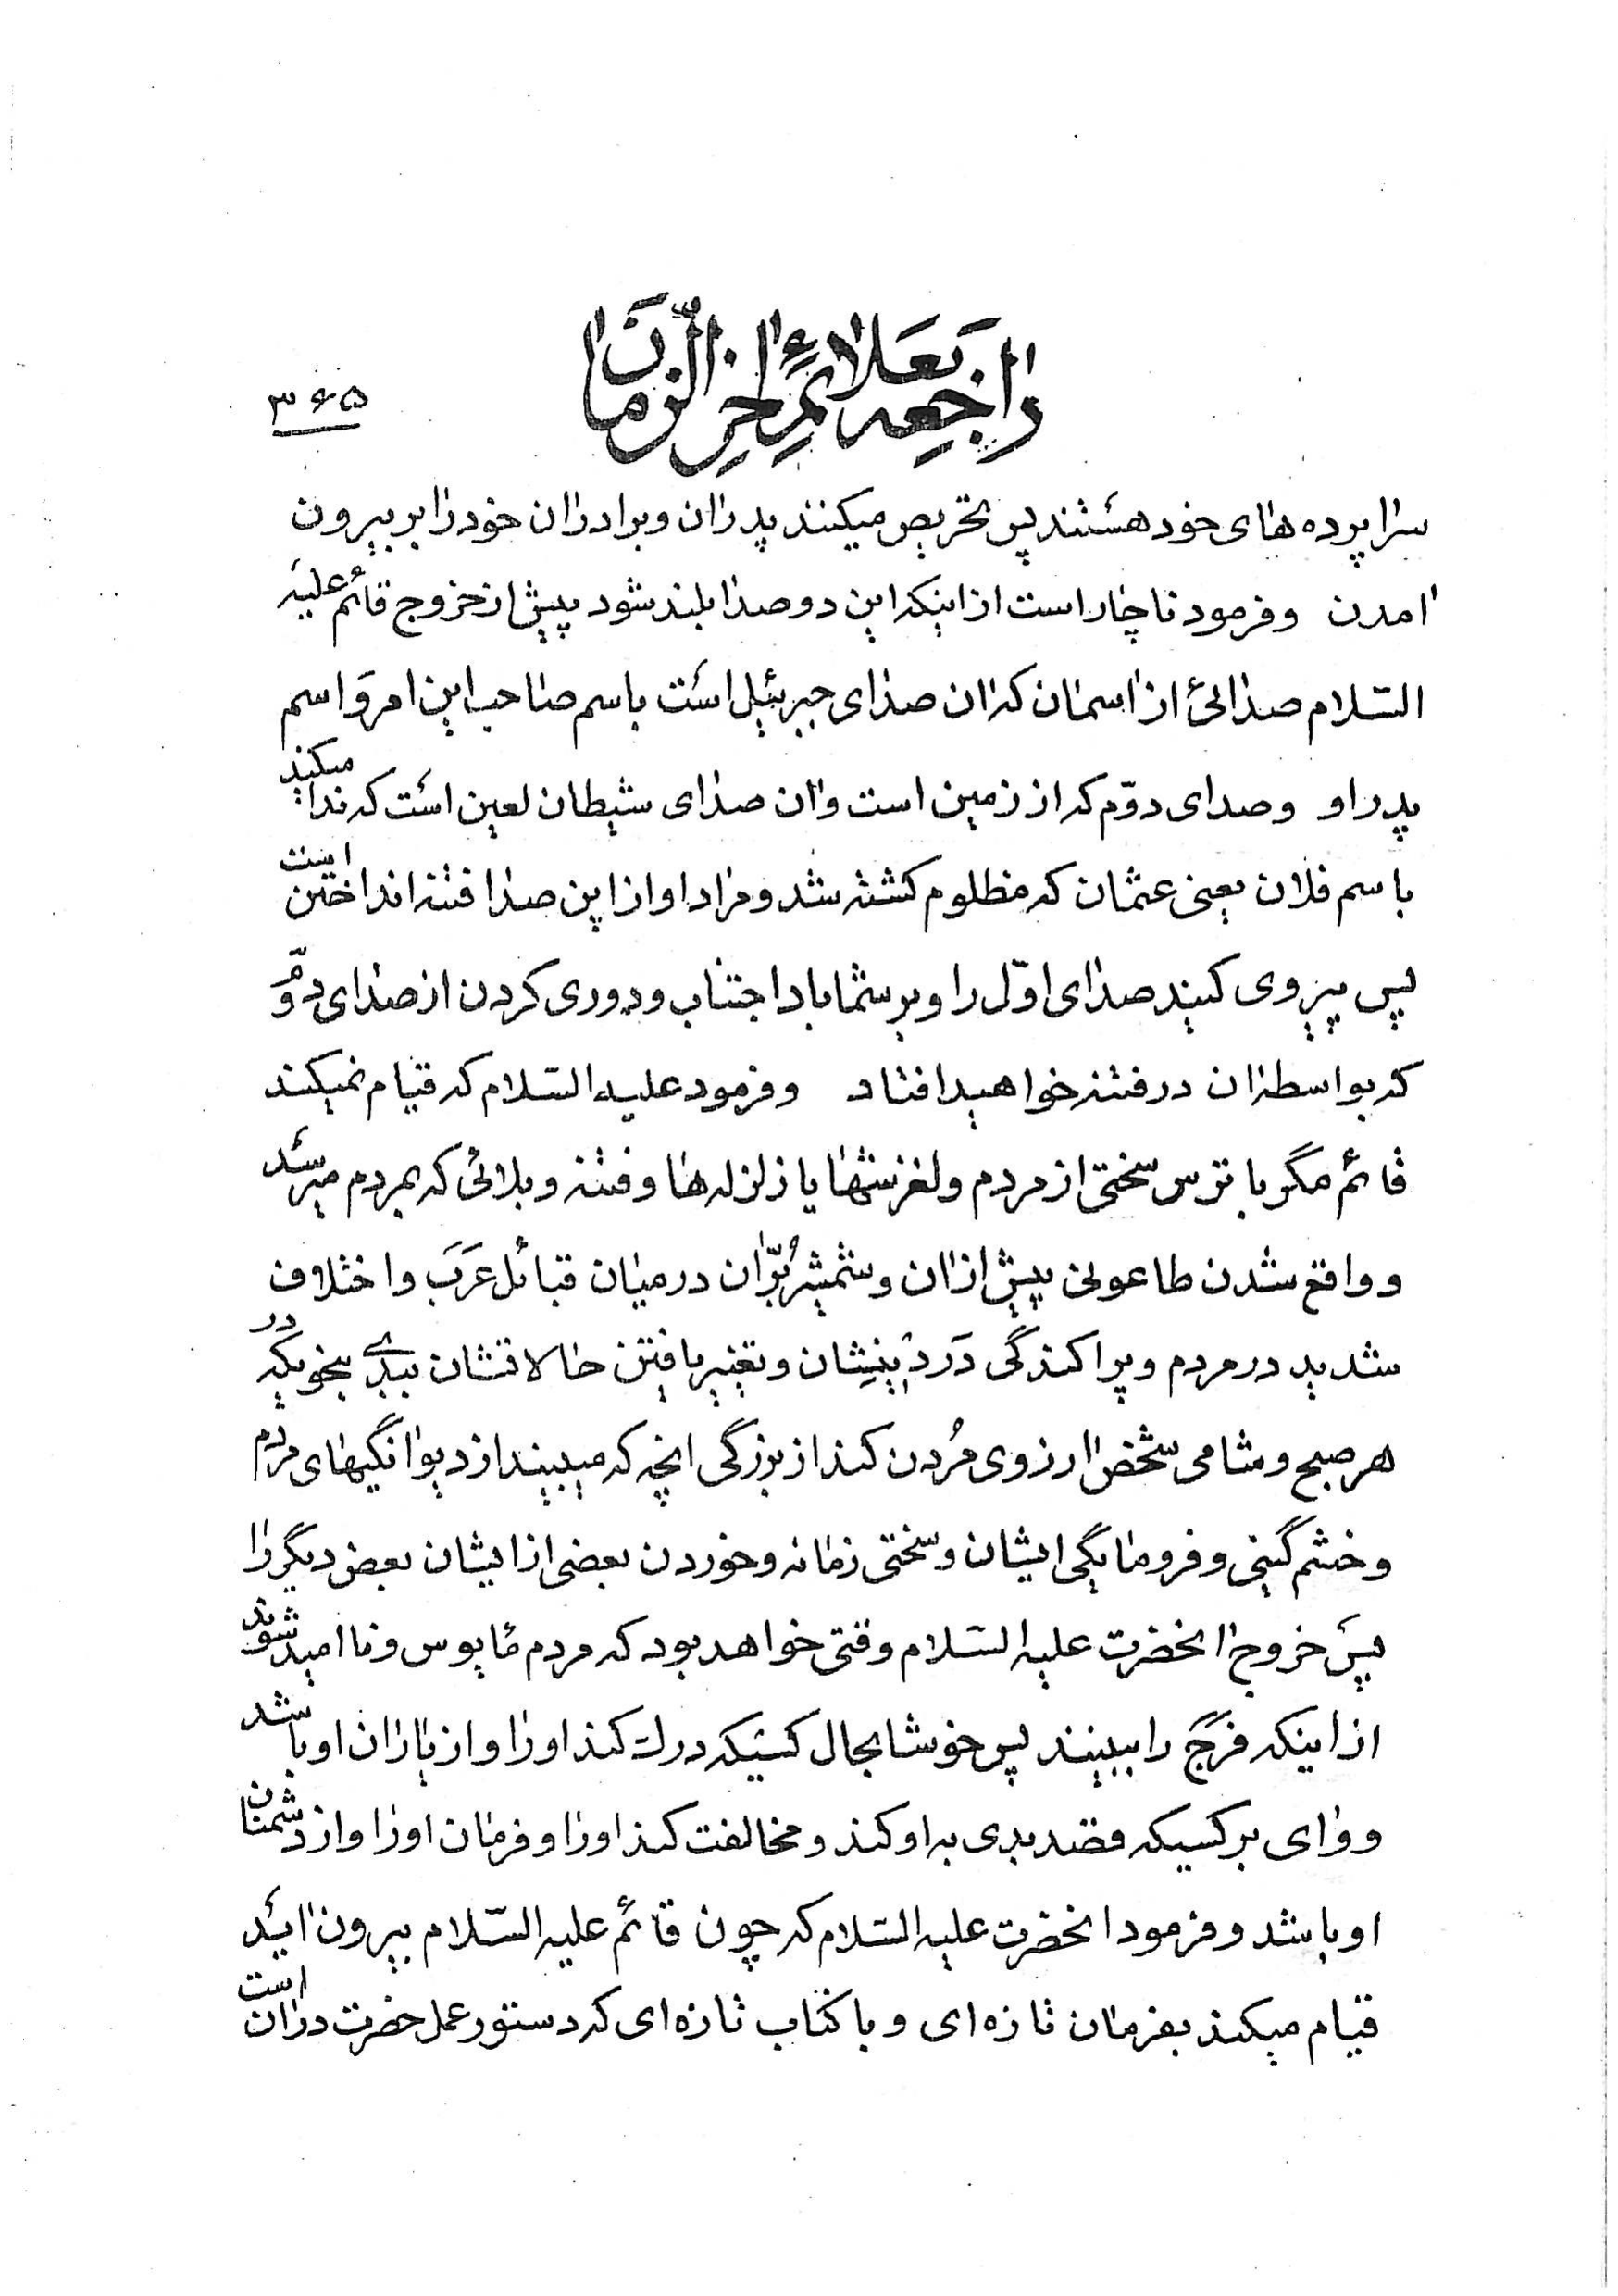 راجعه بعلائم اخر الزمان
۳۶۵
سراپرده های خود هستند پس تحریص میکنند پدران و برادران خود را بر بیرون
امدن و فرمود ناچار است از اینکه این دو صدا بلند شود پیش از خروج قائم علیه
السّلام صدائی از اسمان که ان صدای جبرئیل است باسم صاحب این امر و اسم
پدر او و صدای دوّم که از زمین است و ان صدای شیطان لعین است که ندا میکند
باسم فلان یعنی عثمان که مظلوم کشته شد و مراد او از این صدا فتنه انداختن است
پس پیروی کنید صدای اوّل را و بر شما باد اجتناب و دوری کردن از صدای دوّم
که بواسطه ان در فتنه خواهید افتاد و فرمود علیه السّلام که قیام نمیکند
قائم مگر با ترس سختی از مردم و لغزشها یا زلزله ها و فتنه و بلائی که بمردم میرسد
و واقع شدن طاعونی پیش از ان و شمشیر بُرّان در میان قبائل عَرَب و اختلاف
شدید در مردم و پراکندگی دَر دینِشان و تغییر یافتن حالاتشان ببدی بنحویکه در
هر صبح و شامی شخص ارزوی مُردن کند از بزرگی انچه که میبیند از دیوانگیهای مردم
و خشم گینی و فرومایگی ایشان و سختی زمانه و خوردن بعضی از ایشان بعض دیگر را
پس خروج انحضرت علیه السّلام وقتی خواهد بود که مردم مأیوس و ناامید شوند
از اینکه فَرَج را ببینند پس خوشا بحال کسیکه درك کند او را و از یاران او باشد
و وای بر کسیکه قصد بدی به او کند و مخالفت کند او را و فرمان او را و از دشمنان
او باشد و فرمود انحضرت علیه السّلام که چون قائم علیه السّلام بیرون اید
قیام میکند بفرمان تازه ای و با کتاب تازه ای که دستور عمل حضرت در ان است